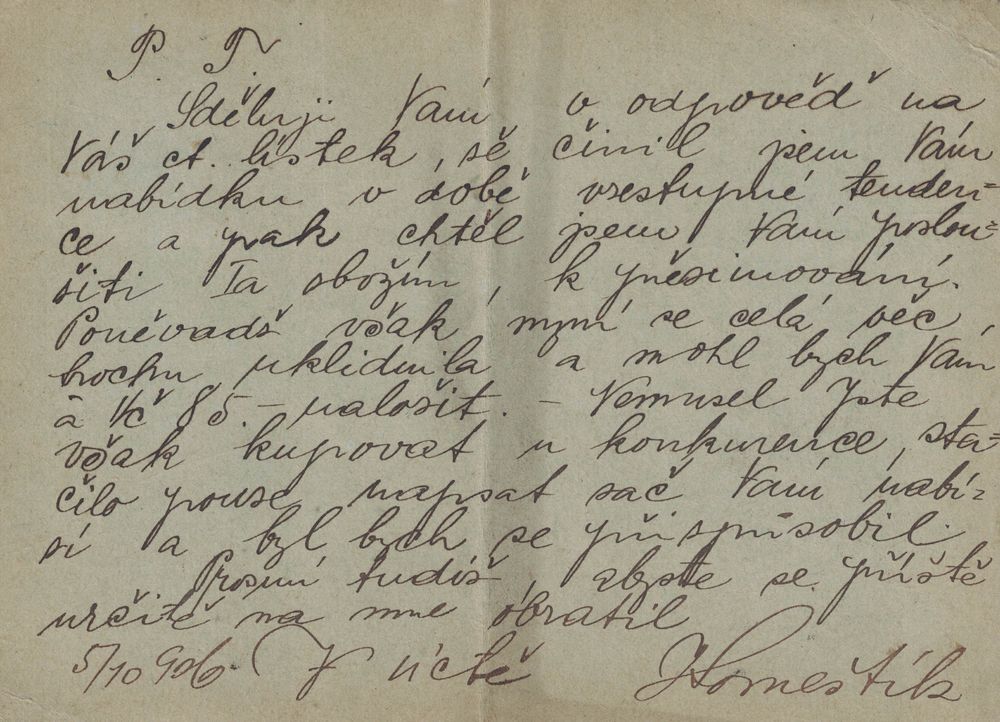 P. T.
Sděluji Vám v odpověď na
Váš ct. lístek, že činil jsem Vám
nabídku v době vzestupné tenden=
ce a pak chtěl jsem Vám poslou=
žiti Ia zbožím, k přesimování.
Poněvadž však nyní se celá věc
trochu uklidnila a mohl bych Vám
à Kč 85.- naložit. - Nemusel jste
však kupovat u konkurence, sta=
čilo pouze napsat zač Vám nabí=
zí a byl bych se přizpůsobil.
Prosím tudíž, abyste se příště
určitě na mne obratil
5/10 906 V úctě